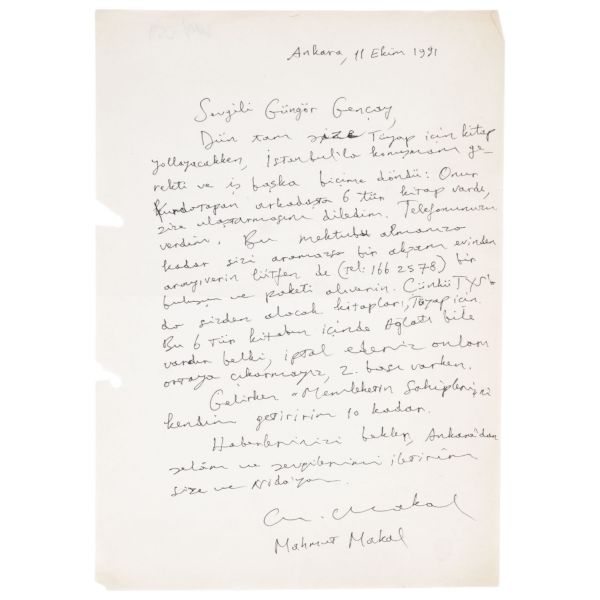 Ankara, 11 Ekim 1991
Sevgili Güngör Gençay,
Dün tam size Tüyap için kitap
yollayacakken, İstanbul'la konuşmam ge-
rekti ve iş başka biçime döndü: Onur
arkadaşta 6 tür kitap vardı,
size ulaştırmasını diledim. Telefonunuzu
verdim. Bu mektubu almanıza
kadar sizi aramazsa bir akşam evinden
arayıverin lütfen de (tel: 166 2578) bir
buluşun ve paketi alıverin. Çünkü TYS'
da sizden alacak kitapları, Tüyap için.
Bu 6 tür kitabın içinde Ağlatı bile
vardır belki, iptal ederiz onları
ortaya çıkarmayız, 2. bası varken.
Gelirken "Memleketin Sahipleri"ni
kendim getiririm 10 kadar.
Haberlerinizi bekler, Ankara'dan
selâm ve sevgilerimi iletirim
size ve
M. Makal
Mahmut Makal